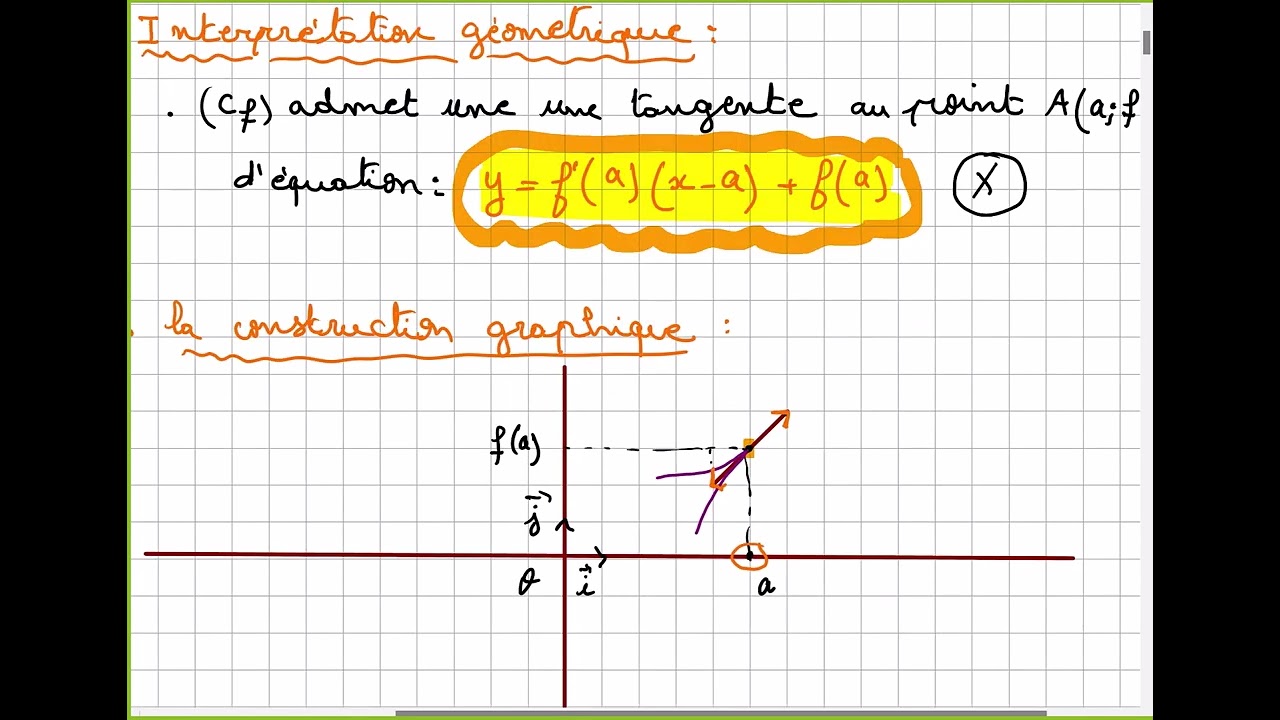 Interprétation géometrique :
. (Cf) admet une une tangente au point A(a; f
d'équation : y = f'(a)(x-a) + f(a) X
. la construction graphique :
f(a)
j
O i a